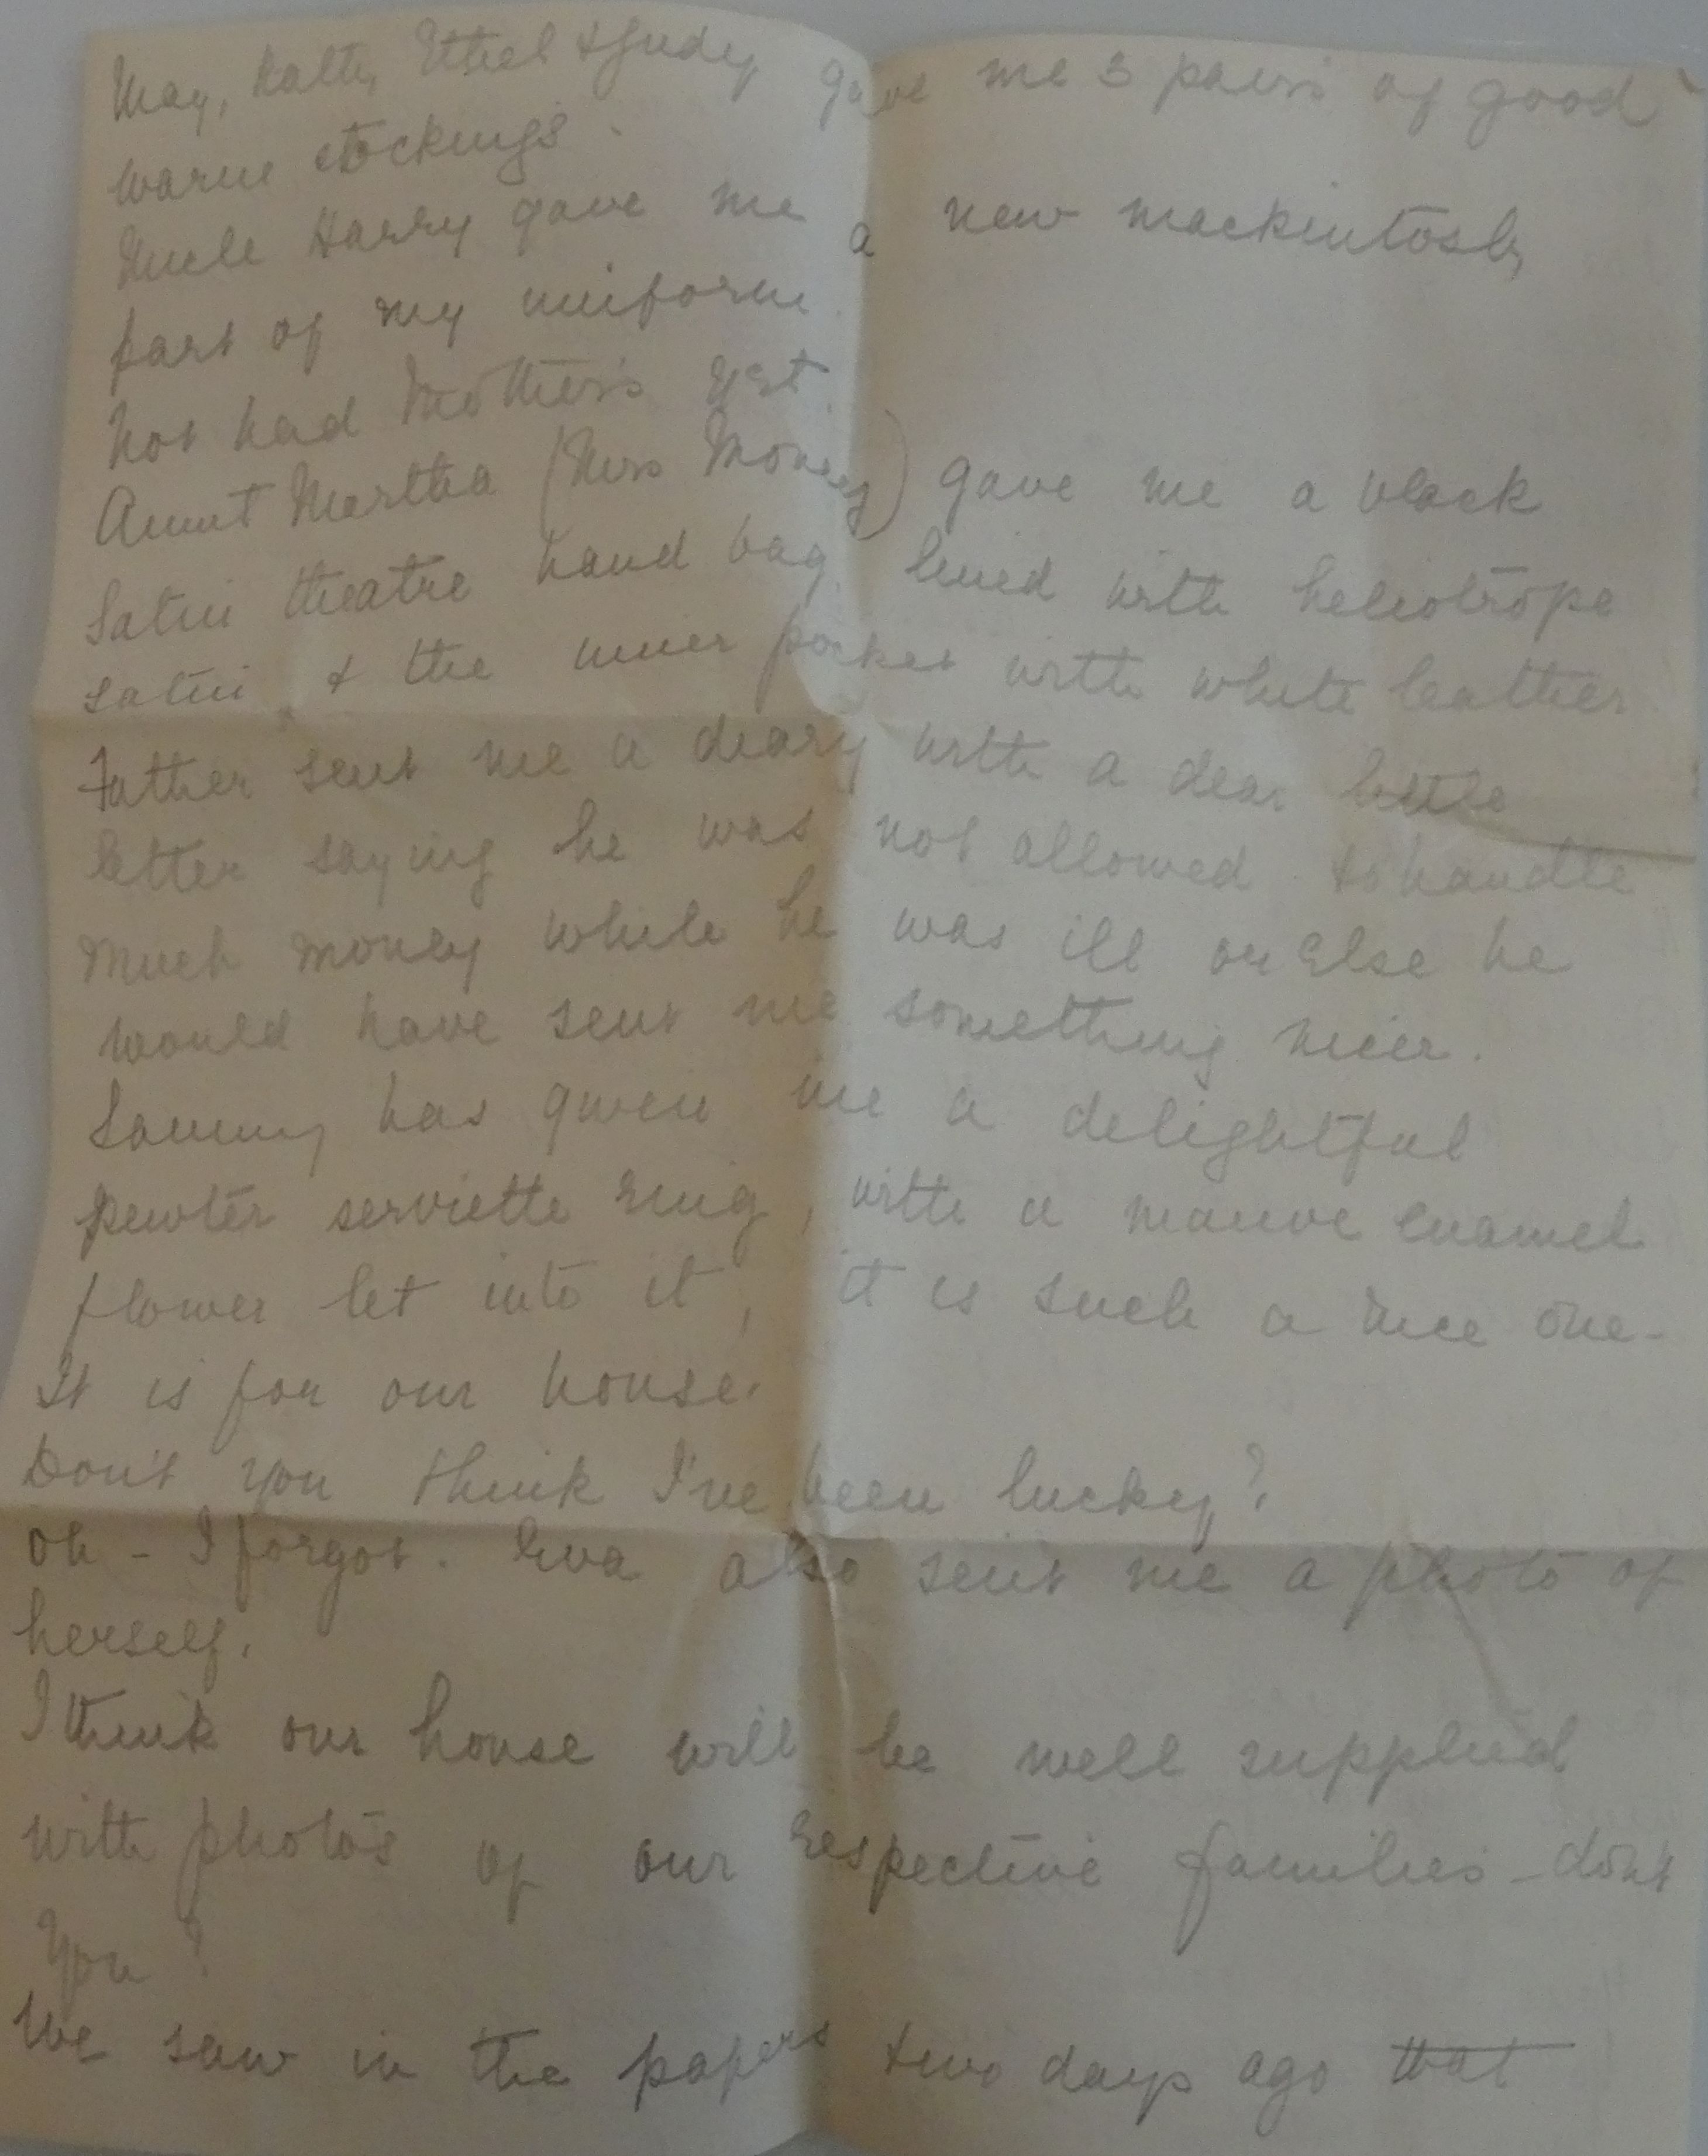 May, Kath, Ethel & Judy gave me 3 pairs of good
warm stockings.
Uncle Harry gave me a new mackintosh,
part of my uniform.
Not had Mother's yet.
Aunt Martha (Mrs Money) gave me a black
satin theatre hand bag lined with heliotrope
satin & the inner pocket with white leather
Father sent me a diary with a dear little
letter saying he was not allowed to handle
much money while he was ill or else he
would have sent me something nicer.
Sammy has given me a delightful
pewter serviette ring, with a mauve enamel
flower let into it, it is such a nice one-
It is for our house.
Don't you think I've been lucky?
Oh - I forgot. Eva also sent me a photo of
herself.
I think our house will be well supplied
with photo's of our respective families - don't
you?
We saw in the papers two days ago that